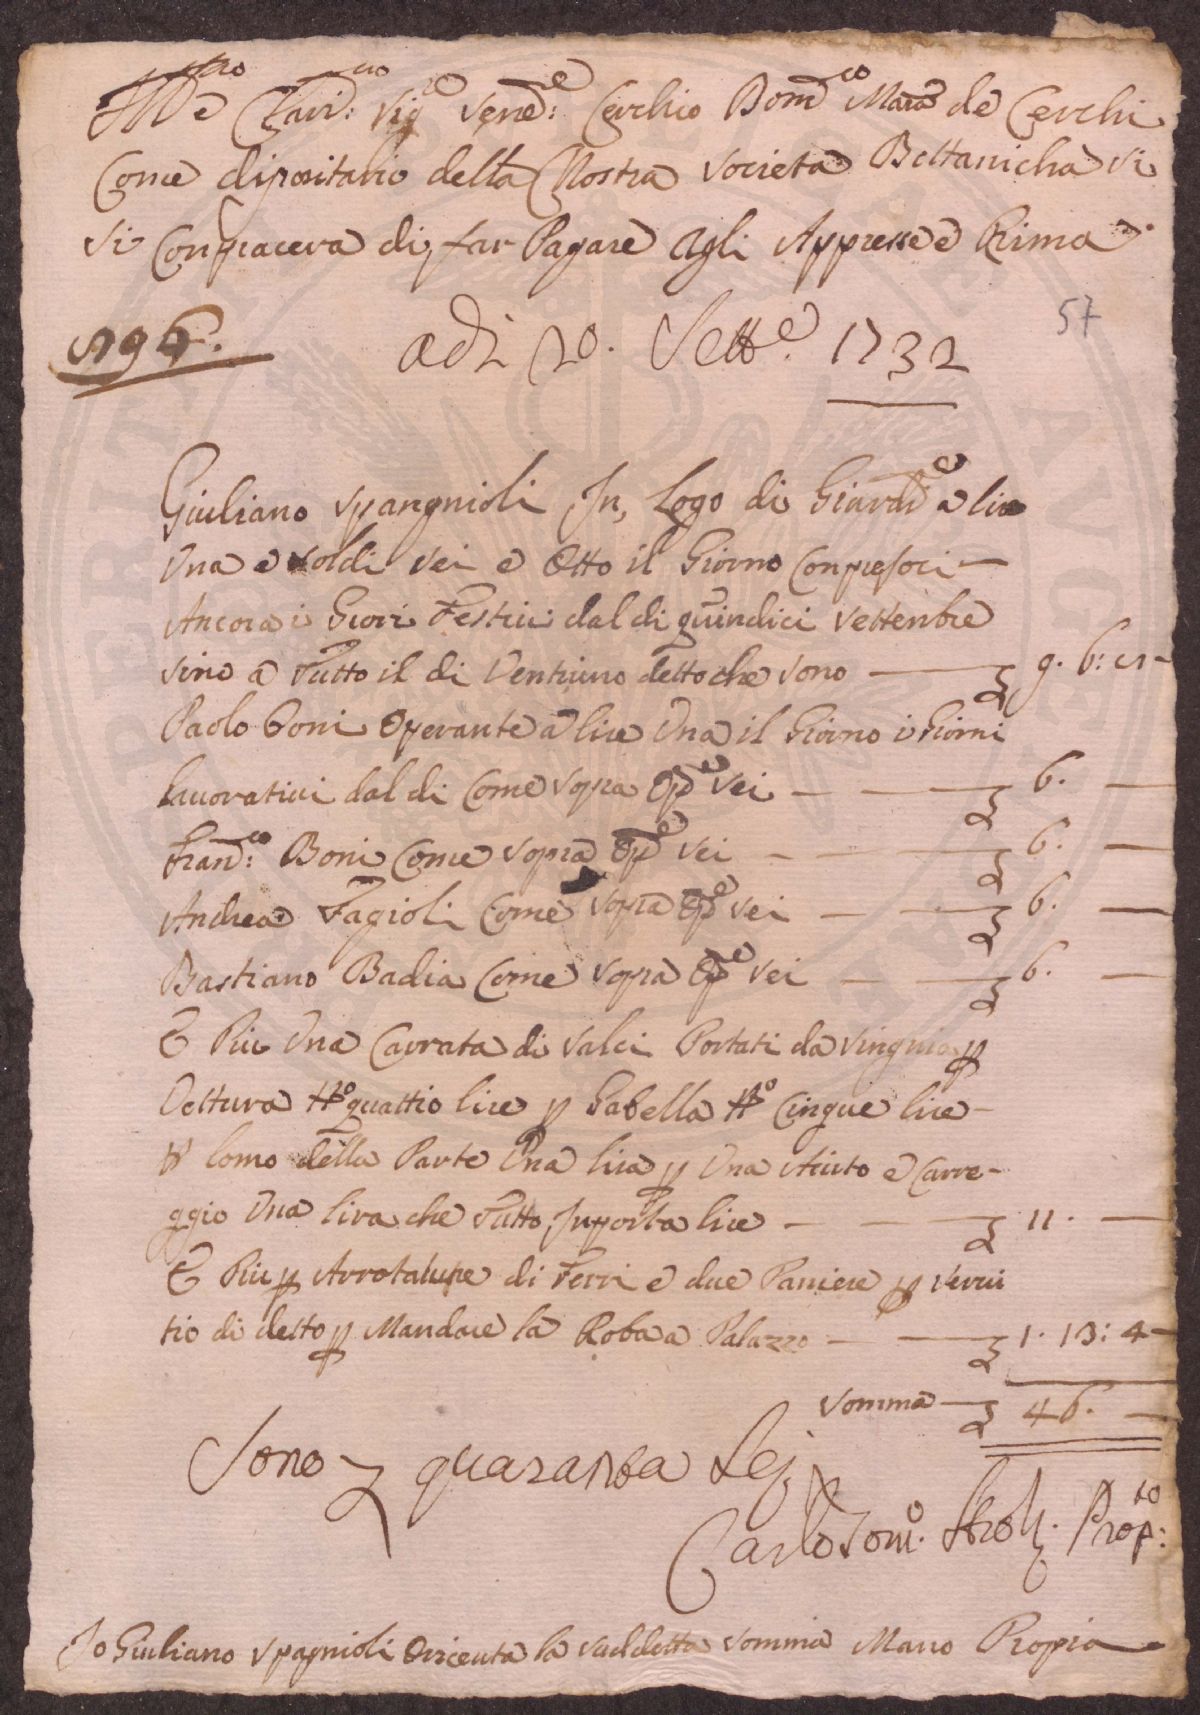 Ill.stro e Clari: Sig.e Vene: Cerchio Dom.co Maria de Cerchi
Come dipositario della Nostra Societa Bottanicha Si
Si Conpiacera di far Pagare Agli Appresse e Prima
adi 20. Sette 1732
57
Giuliano Spangnioli In, Logo di Giard.e a lire
Una e Soldi Sei e Otto il Giorno Conpresoci
Ancora i Giorni Festivi dal di quindici Settenbre
Sino a Tutto il di Ventiuno detto che Sono 9. 6:
Paolo Boni Operante a lire Una il Giorno i Giorni
lavorativi dal di Come Sopra Op.e Sei 6.
Fran.co Boni Come Sopra Op.e Sei 6.
Andrea Fagioli Come Sopra Op.e Sei 6.
Bastiano Badia Come Sopra Op.e Sei 6.
E Piu Una Carrata di Salci Portati da Singnia p
Vettura quattro lire p Gabella Cingue lire
lomo della Parte Una lira p Una Aiuto e Carre-
ggio Una lira che Tutto Inporta lire 11.
E Piu p Arrotature di Ferri e due Paniere p Servi
tio di detto p Mandare la Roba a Palazzo 1. 13: 4
Somma 46.
Sono quaranta Sej
Carlo Tom. Prop.to
Io Giuliano Spagnioli Oricevuta la Suddetta Somma Mano Propia